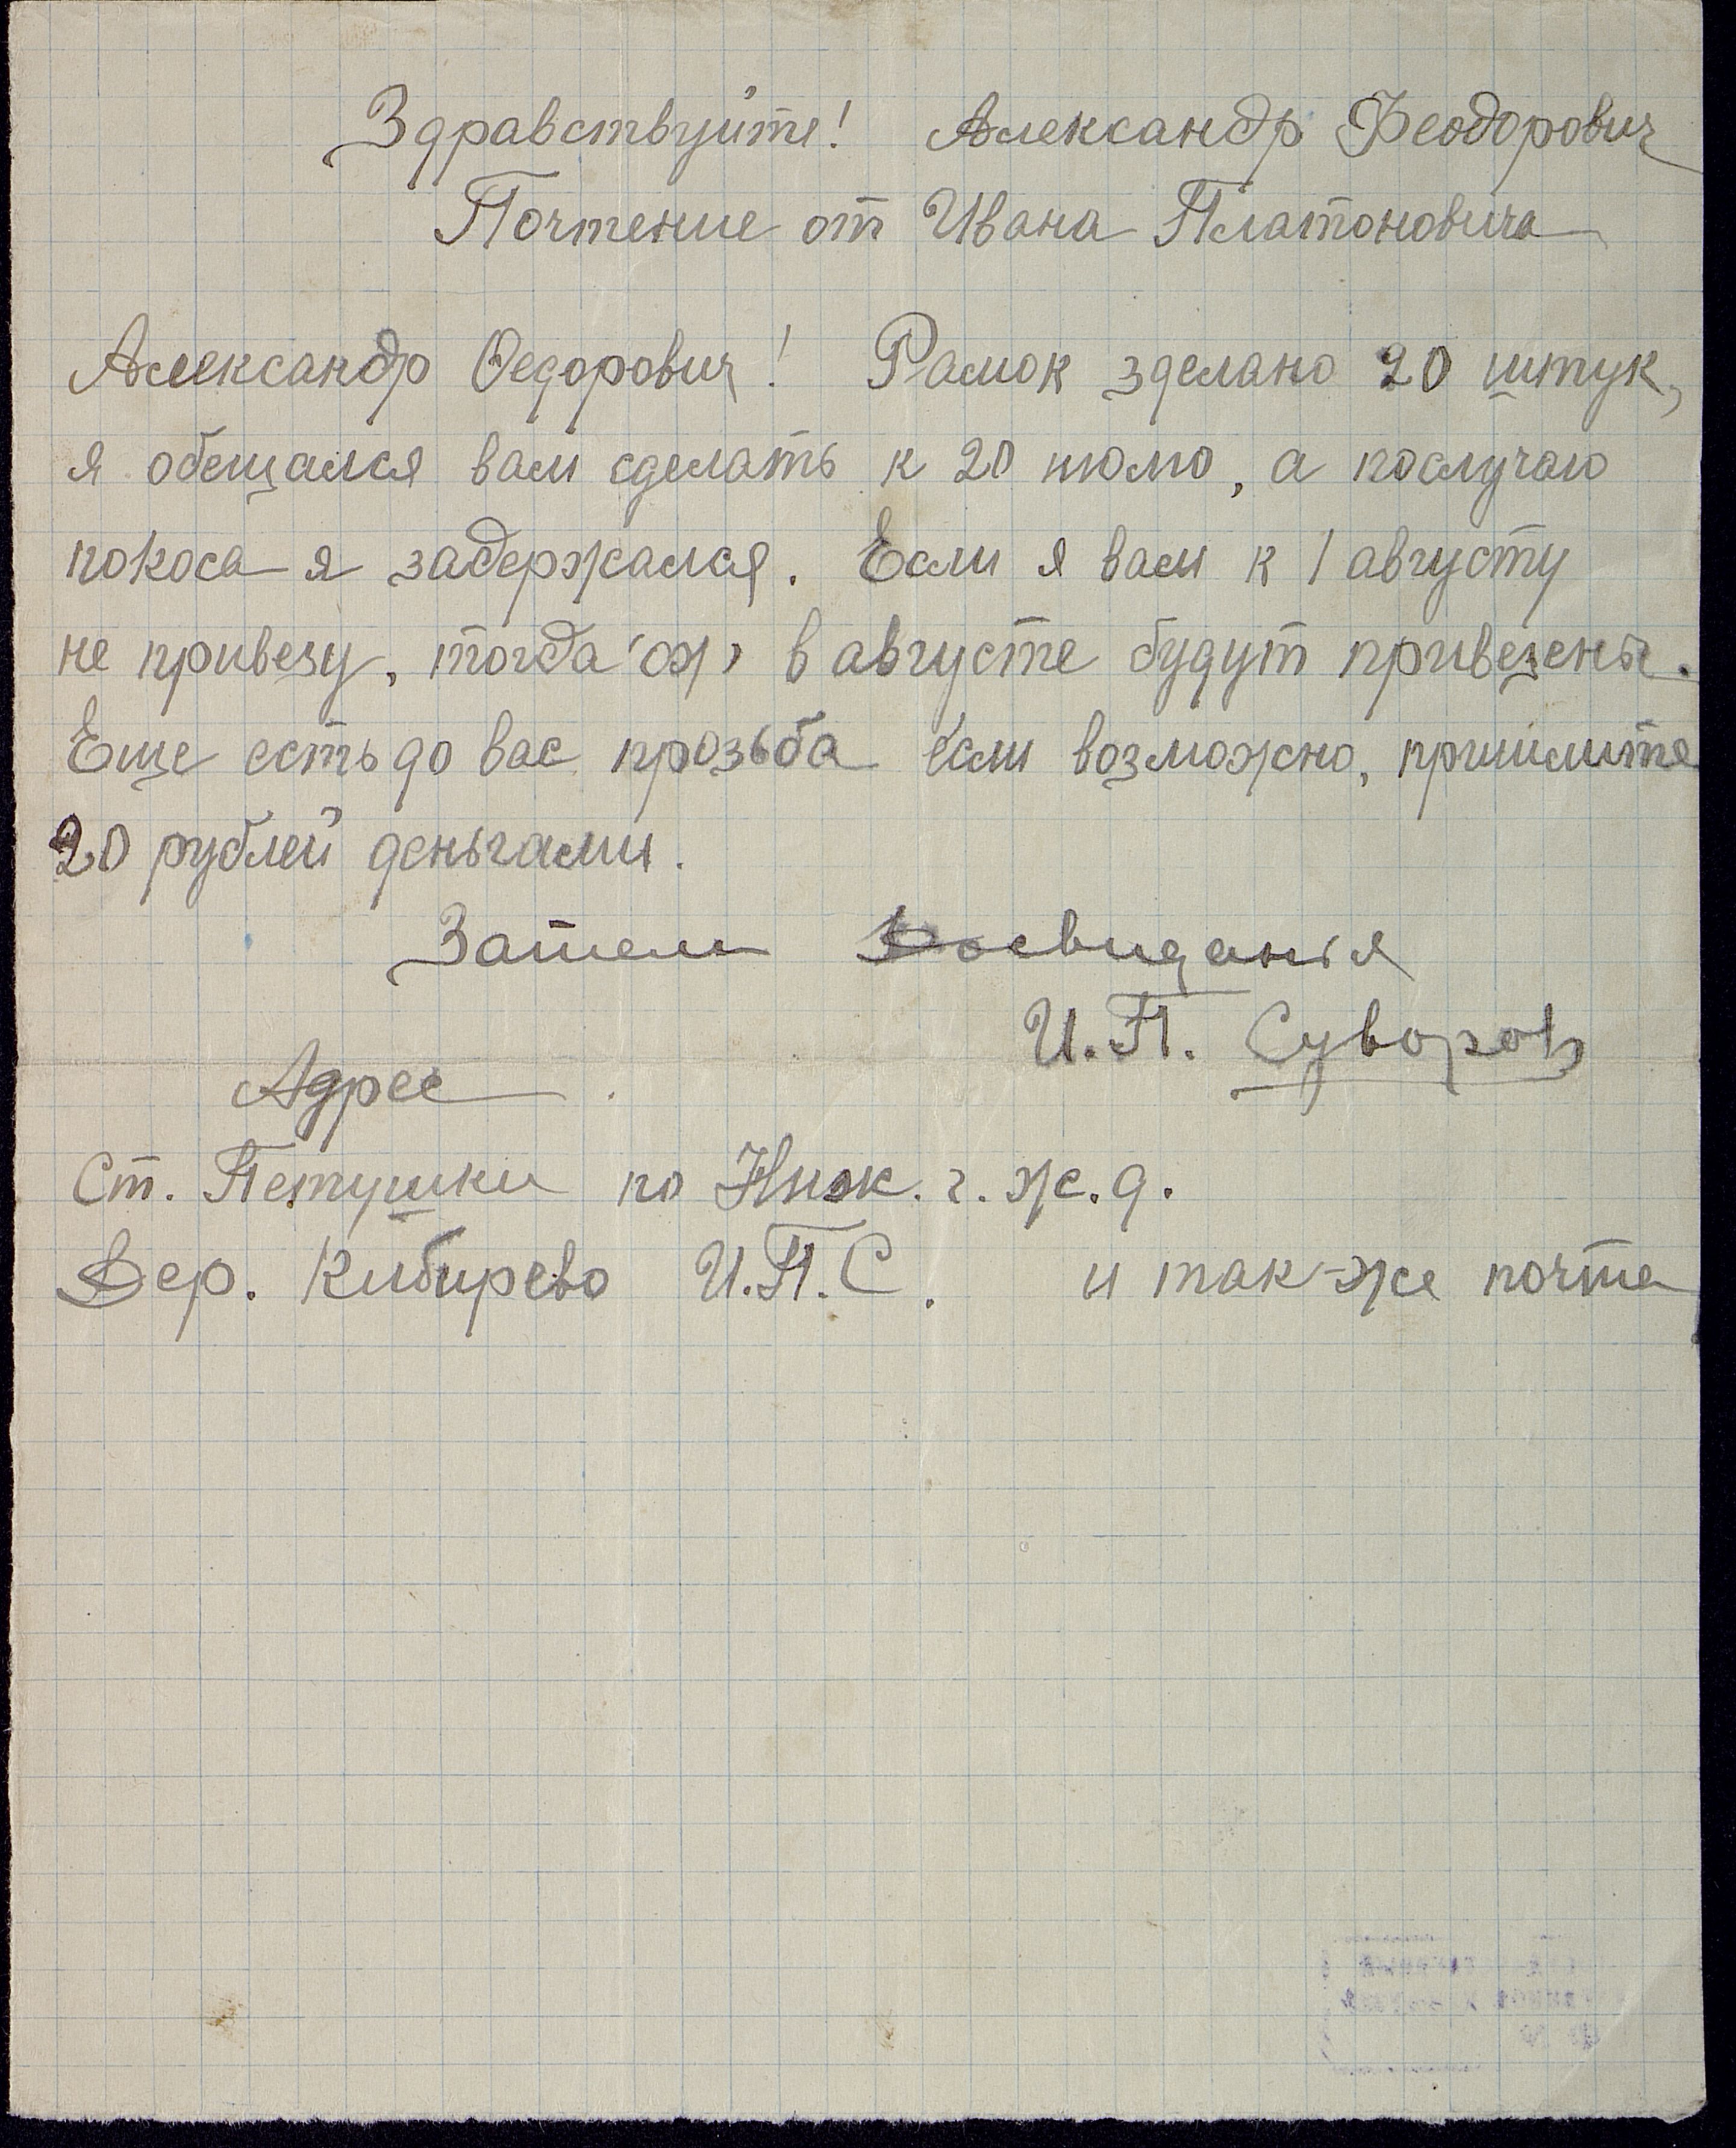 Здравствуйте! Александр Феодорович
Почтение от Ивана Платоновича
Александр Федорович! Рамок зделано 20 штук,
я обещался вам сделать к 20 июлю, а послучаю
покоса я задержался. Если я вам к 1 августу
не привезу, тогда в августе будут привезены.
Еще есть до вас прозьба если возможно, пришлите
20 рублей деньгами.
Затем Досвиданья
И.П. Суворов
Адрес
Ст. Петушки по Ниж. г. ж. д.
Дер. Кибирево И.П.С. и так-же почта